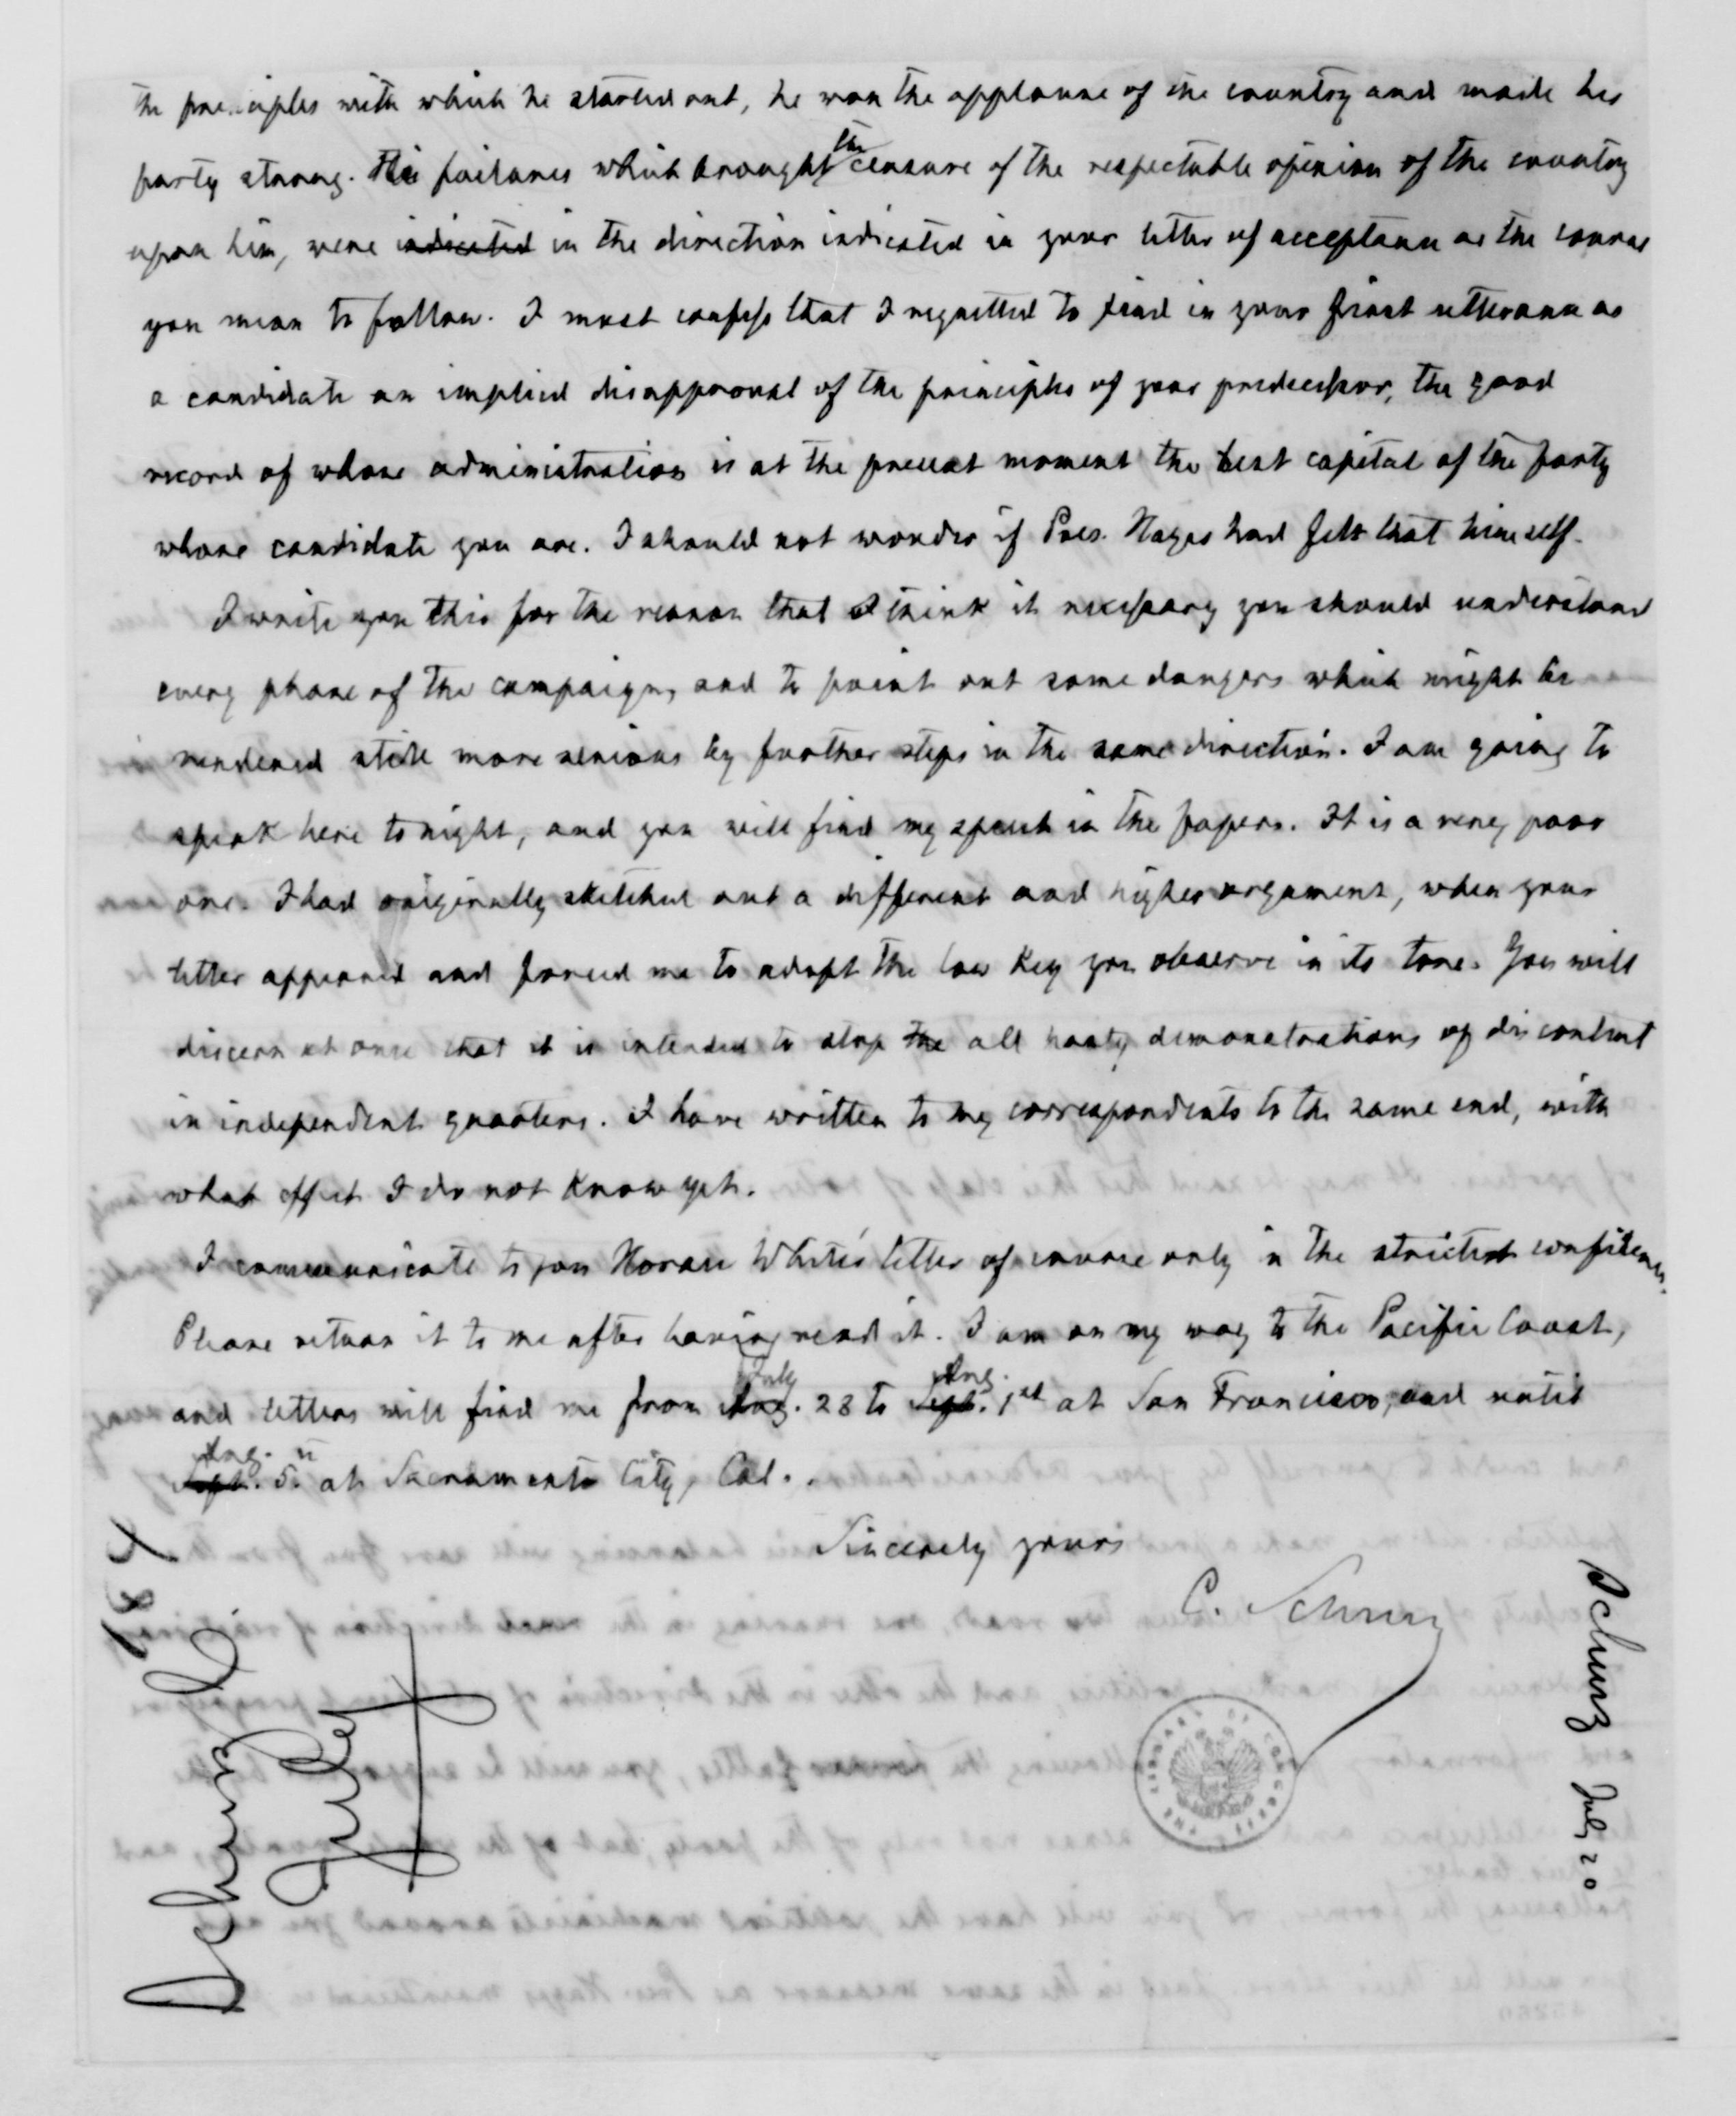 the principles with which he started out, he won the applause of the country and made his
party strong. His failures which brought the censure of the respectable opinion of the country
upon him, were indicated in the direction indicated in your letter of acceptance as the course
you mean to follow. I must confess that I regretted to find in your first utterance as
a candidate an implied disapproval of the principles of your predecessor, the good
record of whose administration is at the present moment the best capital of the party
whose candidate you are. I should not wonder if Pres. Hayes had felt that himself.
I write you this for the reason that I think it necessary you should understand
every phase of the campaign, and to point out some dangers which might be
rendered still more serious by further steps in the same direction. I am going to
speak here to night, and you will find my speech in the papers. It is a very poor
one. I had originally sketched out a different and higher argument, when your
letter appeared and forced me to adopt the low key you observe in its tone. You will
discern at once that it is intended to stop the all hasty demonstrations of discontent
in independent quarters. I have written to my correspondents to the same end, with
what effect I do not know yet.
I communicate to you Horace White's letter of course only in the strictest confidence.
Please return it to me after having read it. I am on my way to the Pacific Coast,
and letters will find me from Aug. July 28 to Sept. Aug. 1st at San Francisco, and until
Sept. Aug. 5. at Sacramento City, Cal.
Sincerely yours
C. Schurz
Schurz July 20
Schurz
July
187
THE LIBRARY OF CONGRESS